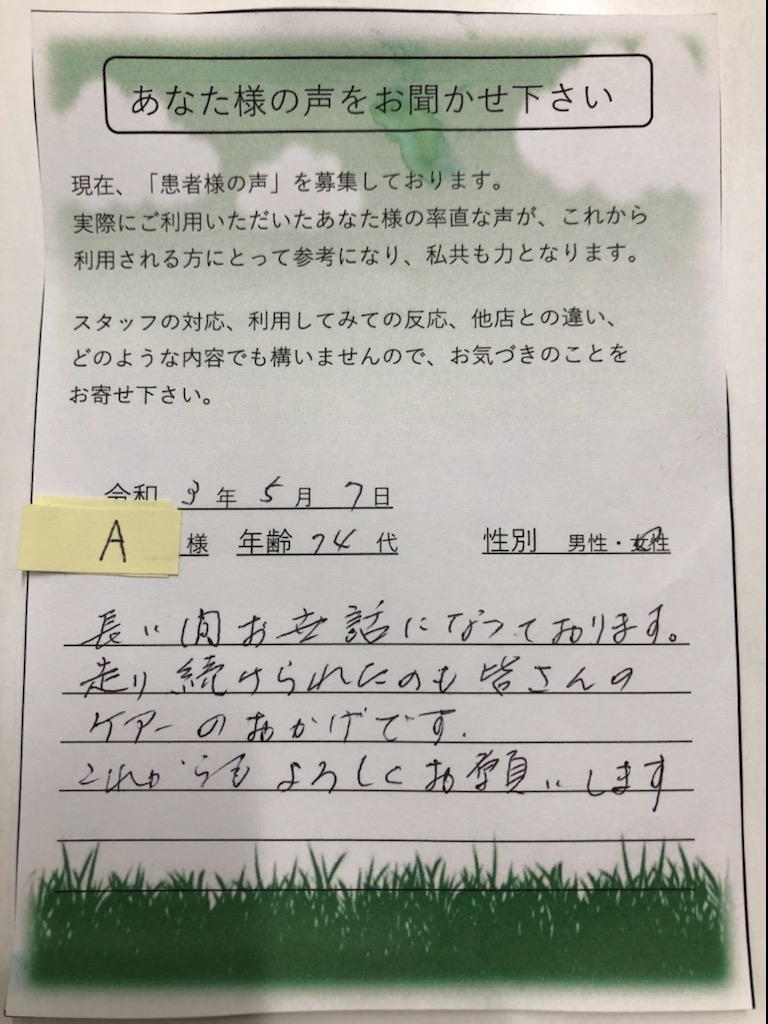 あなた様の声をお聞かせ下さい
現在、「患者様の声」を募集しております。
実際にご利用いただいたあなた様の率直な声が、これから
利用される方にとって参考になり、私共も力となります。
スタッフの対応、利用してみての反応、他店との違い、
どのような内容でも構いませんので、お気づきのことを
お寄せ下さい。
令和 3 年 5 月 7 日
A 様 年齢 74 代 性別 男性・女性
長い間お世話になっております。
走り続けられたのも皆さんの
ケアーのおかげです.
これからもよろしくお願いします